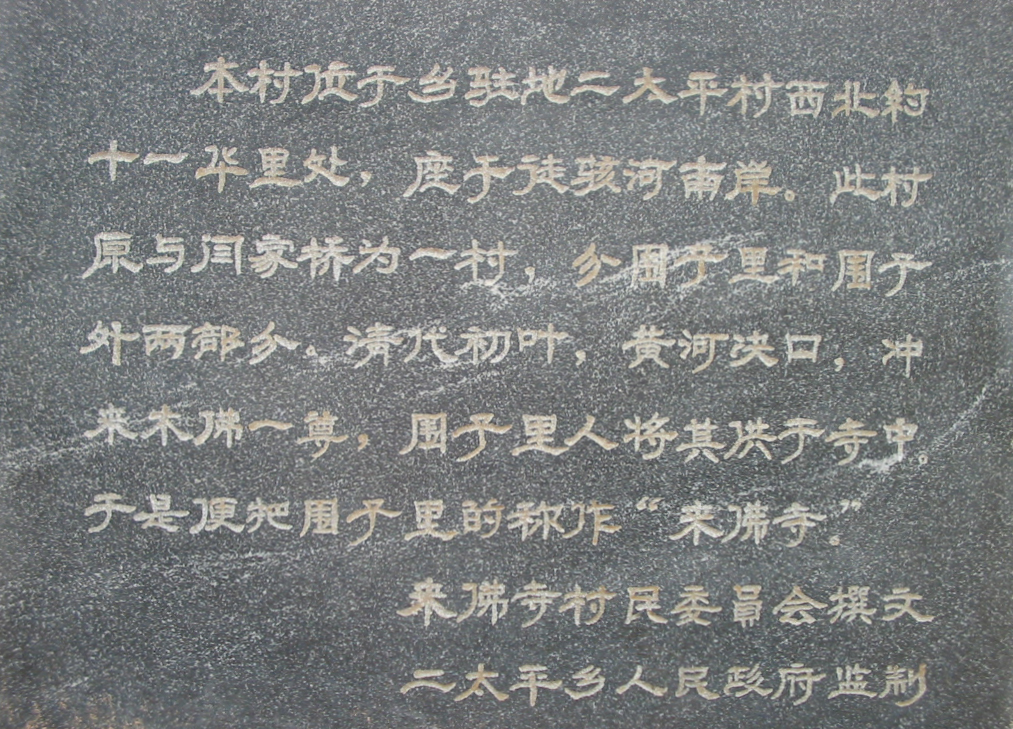 本村位于乡驻地二太平村西北约
十一华里处，座于徒骇河南岸。此村
原与闫家桥为一村，分围子里和围子
外两部分。清代初叶，黄河决口，冲
来木佛一尊，围子里人将其供于寺中。
于是便把围子里的称作“来佛寺”。
来佛寺村民委员会撰文
二太平乡人民政府监制